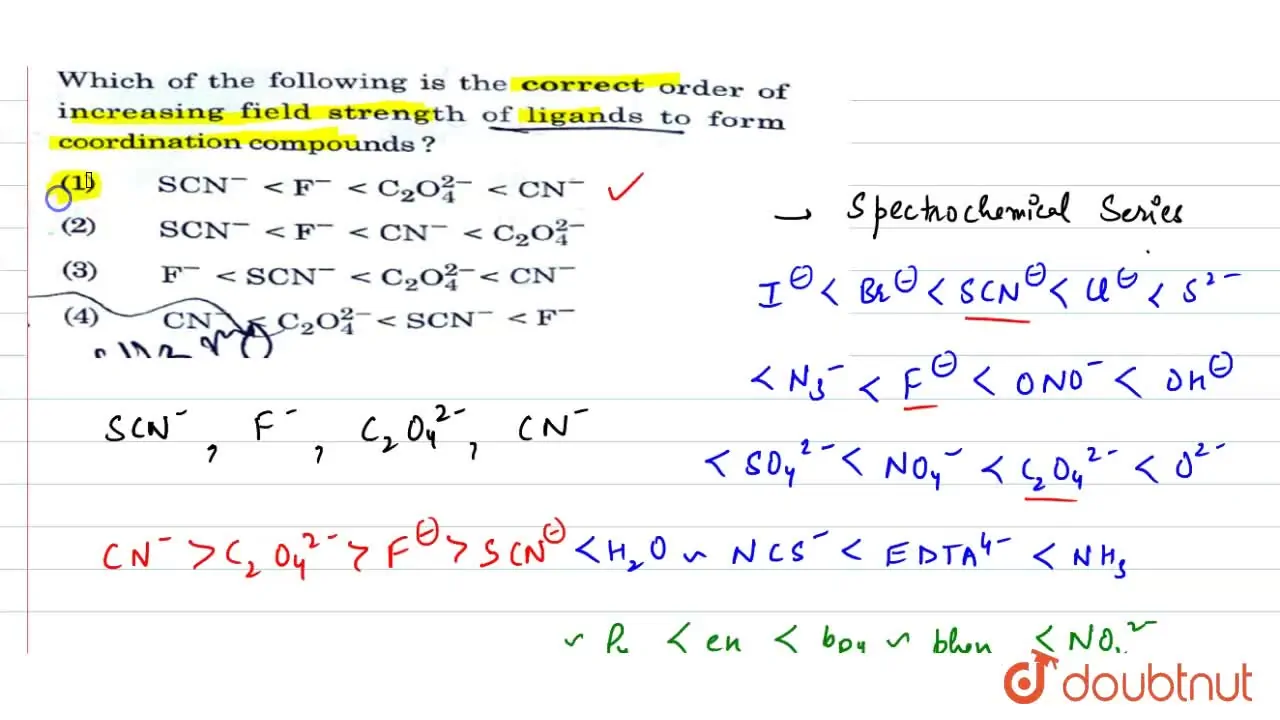 Which of the following is the correct order of
increasing field strength of ligands to form
coordination compounds ?
(1) SCN⁻ < F⁻ < C₂O₄²⁻ < CN⁻ ✓
(2) SCN⁻ < F⁻ < CN⁻ < C₂O₄²⁻
(3) F⁻ < SCN⁻ < C₂O₄²⁻ < CN⁻
(4) CN⁻ < C₂O₄²⁻ < SCN⁻ < F⁻
SCN⁻, F⁻, C₂O₄²⁻, CN⁻
CN⁻ > C₂O₄²⁻ > F⊖ > SCN⊖
→ Spectrochemical Series
I⊖ < Br⊖ < SCN⊖ < Cl⊖ < S²⁻
< N₃⁻ < F⊖ < ONO⁻ < OH⊖
< SO₄²⁻ < NO₄⁻ < C₂O₄²⁻ < O²⁻
< H₂O ~ NCS⁻ < EDTA⁴⁻ < NH₃
~ < en < ~ phen < NO₂
doubtnut